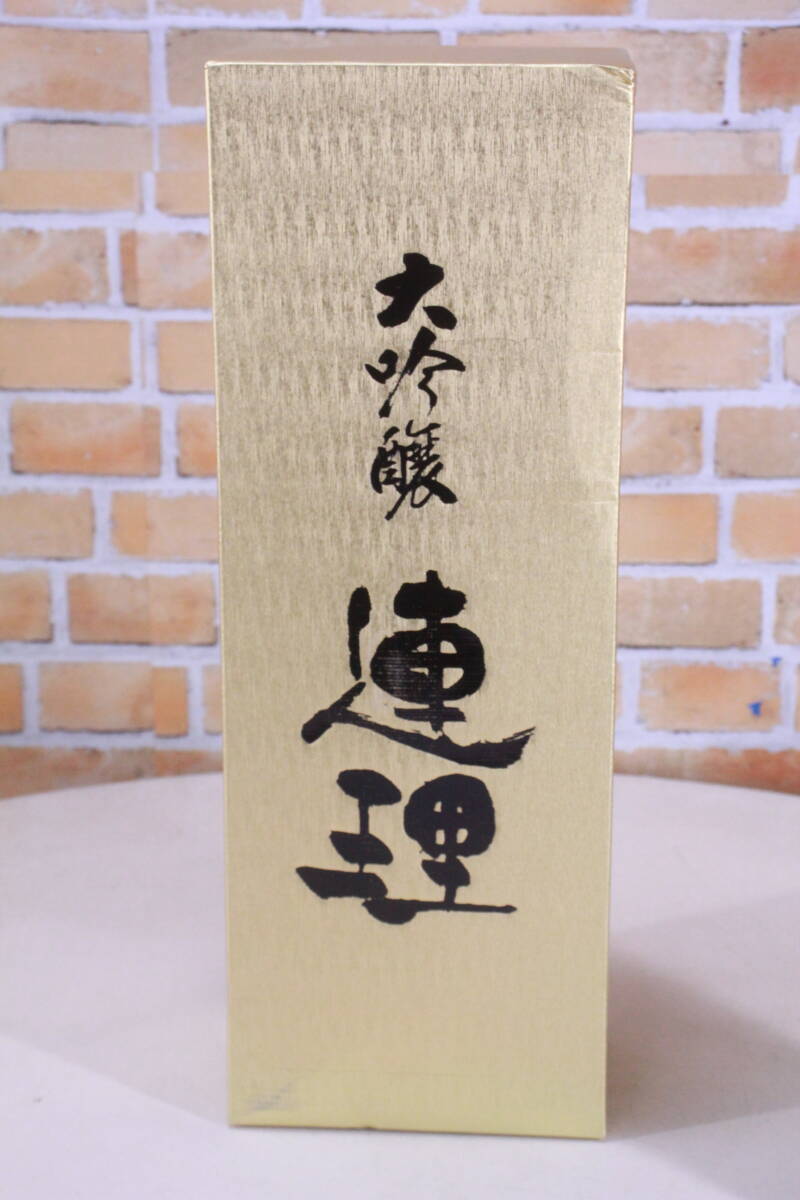 大吟醸
連理